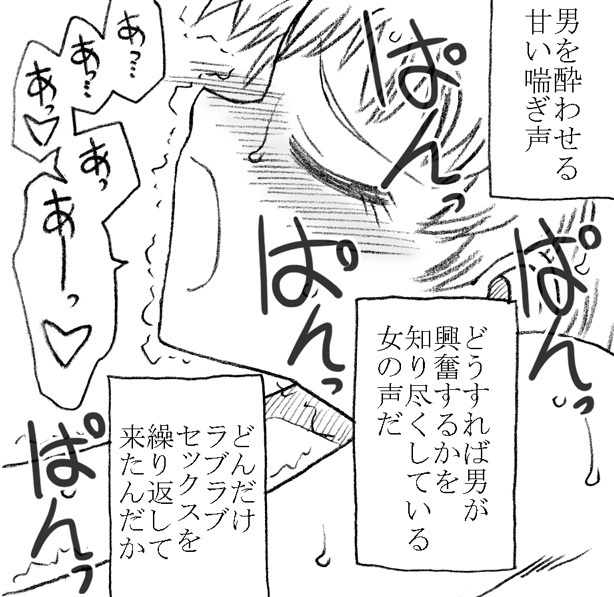 男を酔わせる
甘い喘ぎ声
ぱんっ
ぱんっ
ぱんっ
あっ…
あっ…
あっ♡
あっ
あーっ♡
どうすれば男が
興奮するかを
知り尽くしている
女の声だ
どんだけ
ラブラブ
セックスを
繰り返して
来たんだか
ぱんっ